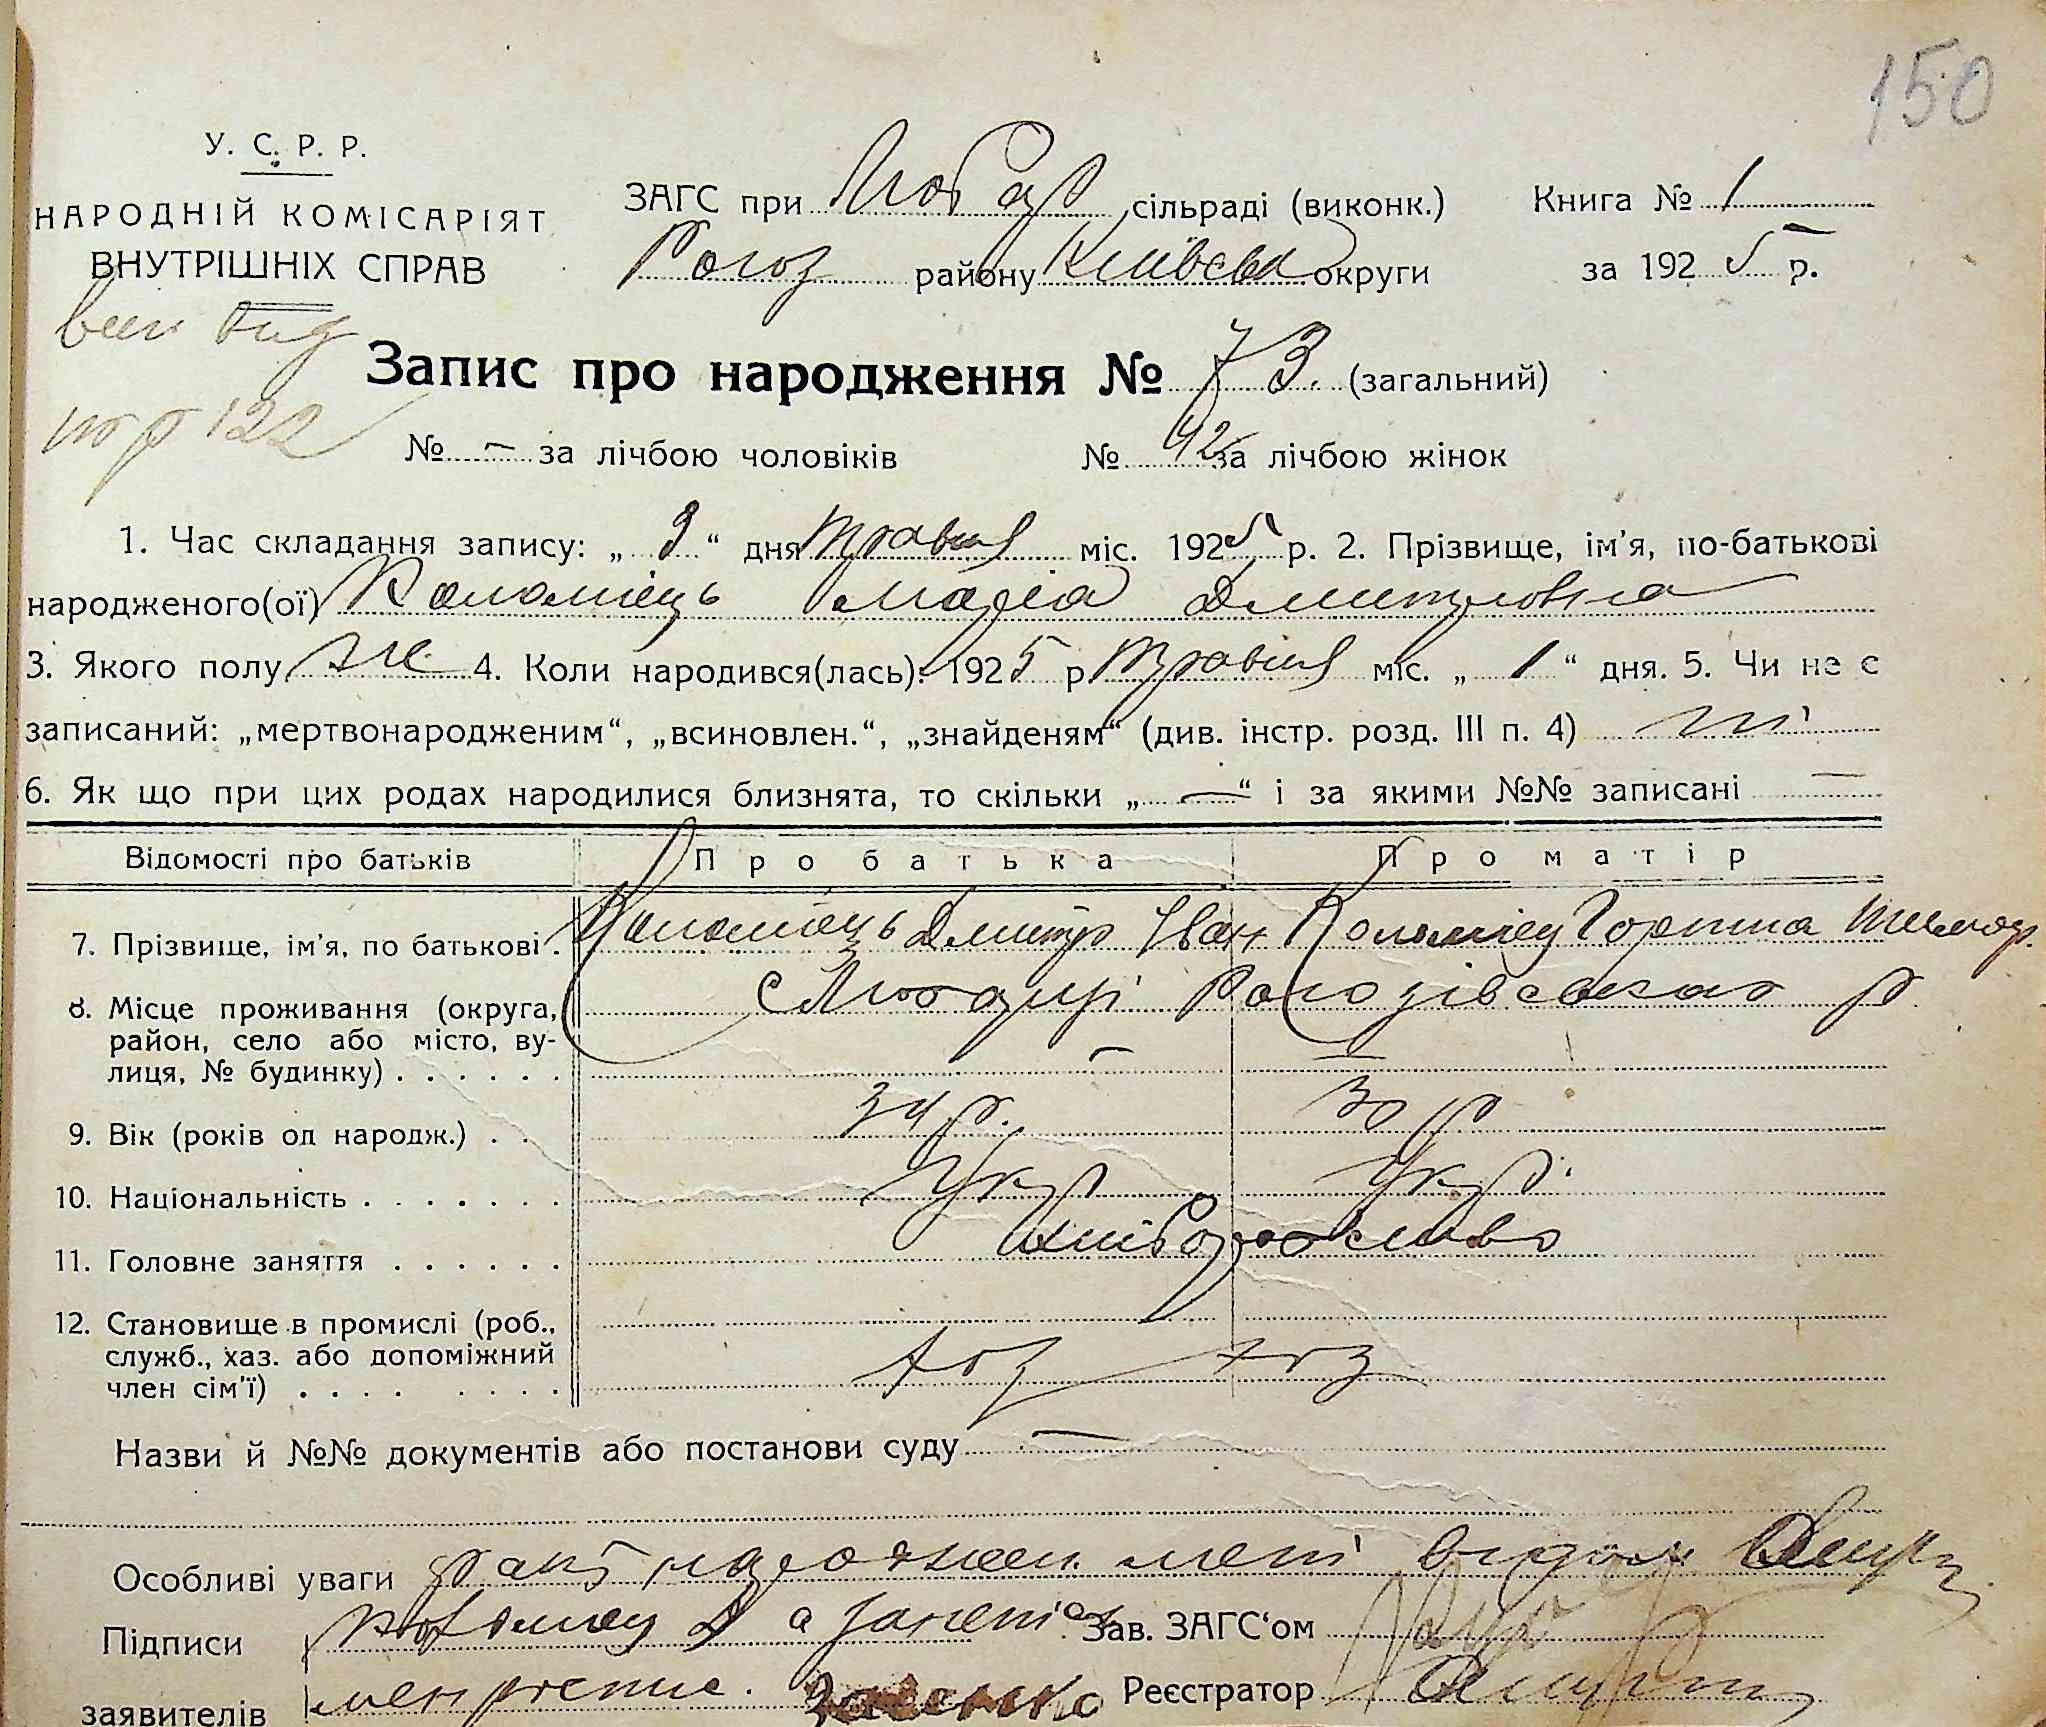 150
У. С. Р. Р.
НАРОДНІЙ КОМІСАРІЯТ
ВНУТРІШНІХ СПРАВ
ЗАГС при Любар сільраді (виконк.) Книга № 1
Рогоз району Київськ округи за 1925 р.
Запис про народження № 73. (загальний)
122
№ — за лічбою чоловіків № 42 за лічбою жінок
1. Час складання запису: „ 3 “ дня травня міс. 1925 р. 2. Прізвище, ім'я, по-батькові
народженого(ої) Коломієць Марія Дмитровна
3. Якого полу ж 4. Коли народився(лась): 1925 р травня міс. „ 1 “ дня. 5. Чи не є
записаний: „мертвонародженим“, „всиновлен.“, „знайденям“ (див. інстр. розд. III п. 4) ні
6. Як що при цих родах народилися близнята, то скільки „ — “ і за якими №№ записані —
Відомості про батьків Про батька Про матір
7. Прізвище, ім'я, по батькові . Коломієць Дмитр Іван Коломієц Горпина Тимофр.
8. Місце проживання (округа, с Любарці Рогозівського р
район, село або місто, ву-
лиця, № будинку) . . . . . . — —
9. Вік (років од народж.) . . 34 р. 30 р
10. Національність . . . . . . . Укр Укр.
11. Головне заняття . . . . . . хліборобство
12. Становище в промислі (роб.,
служб., хаз. або допоміжний
член сім'ї) . . . . . . . . хоз хоз
Назви й №№ документів або постанови суду —
Особливі уваги народжен.
Підписи Коломиец Д а Зав. ЗАГС'ом
заявителів Реєстратор